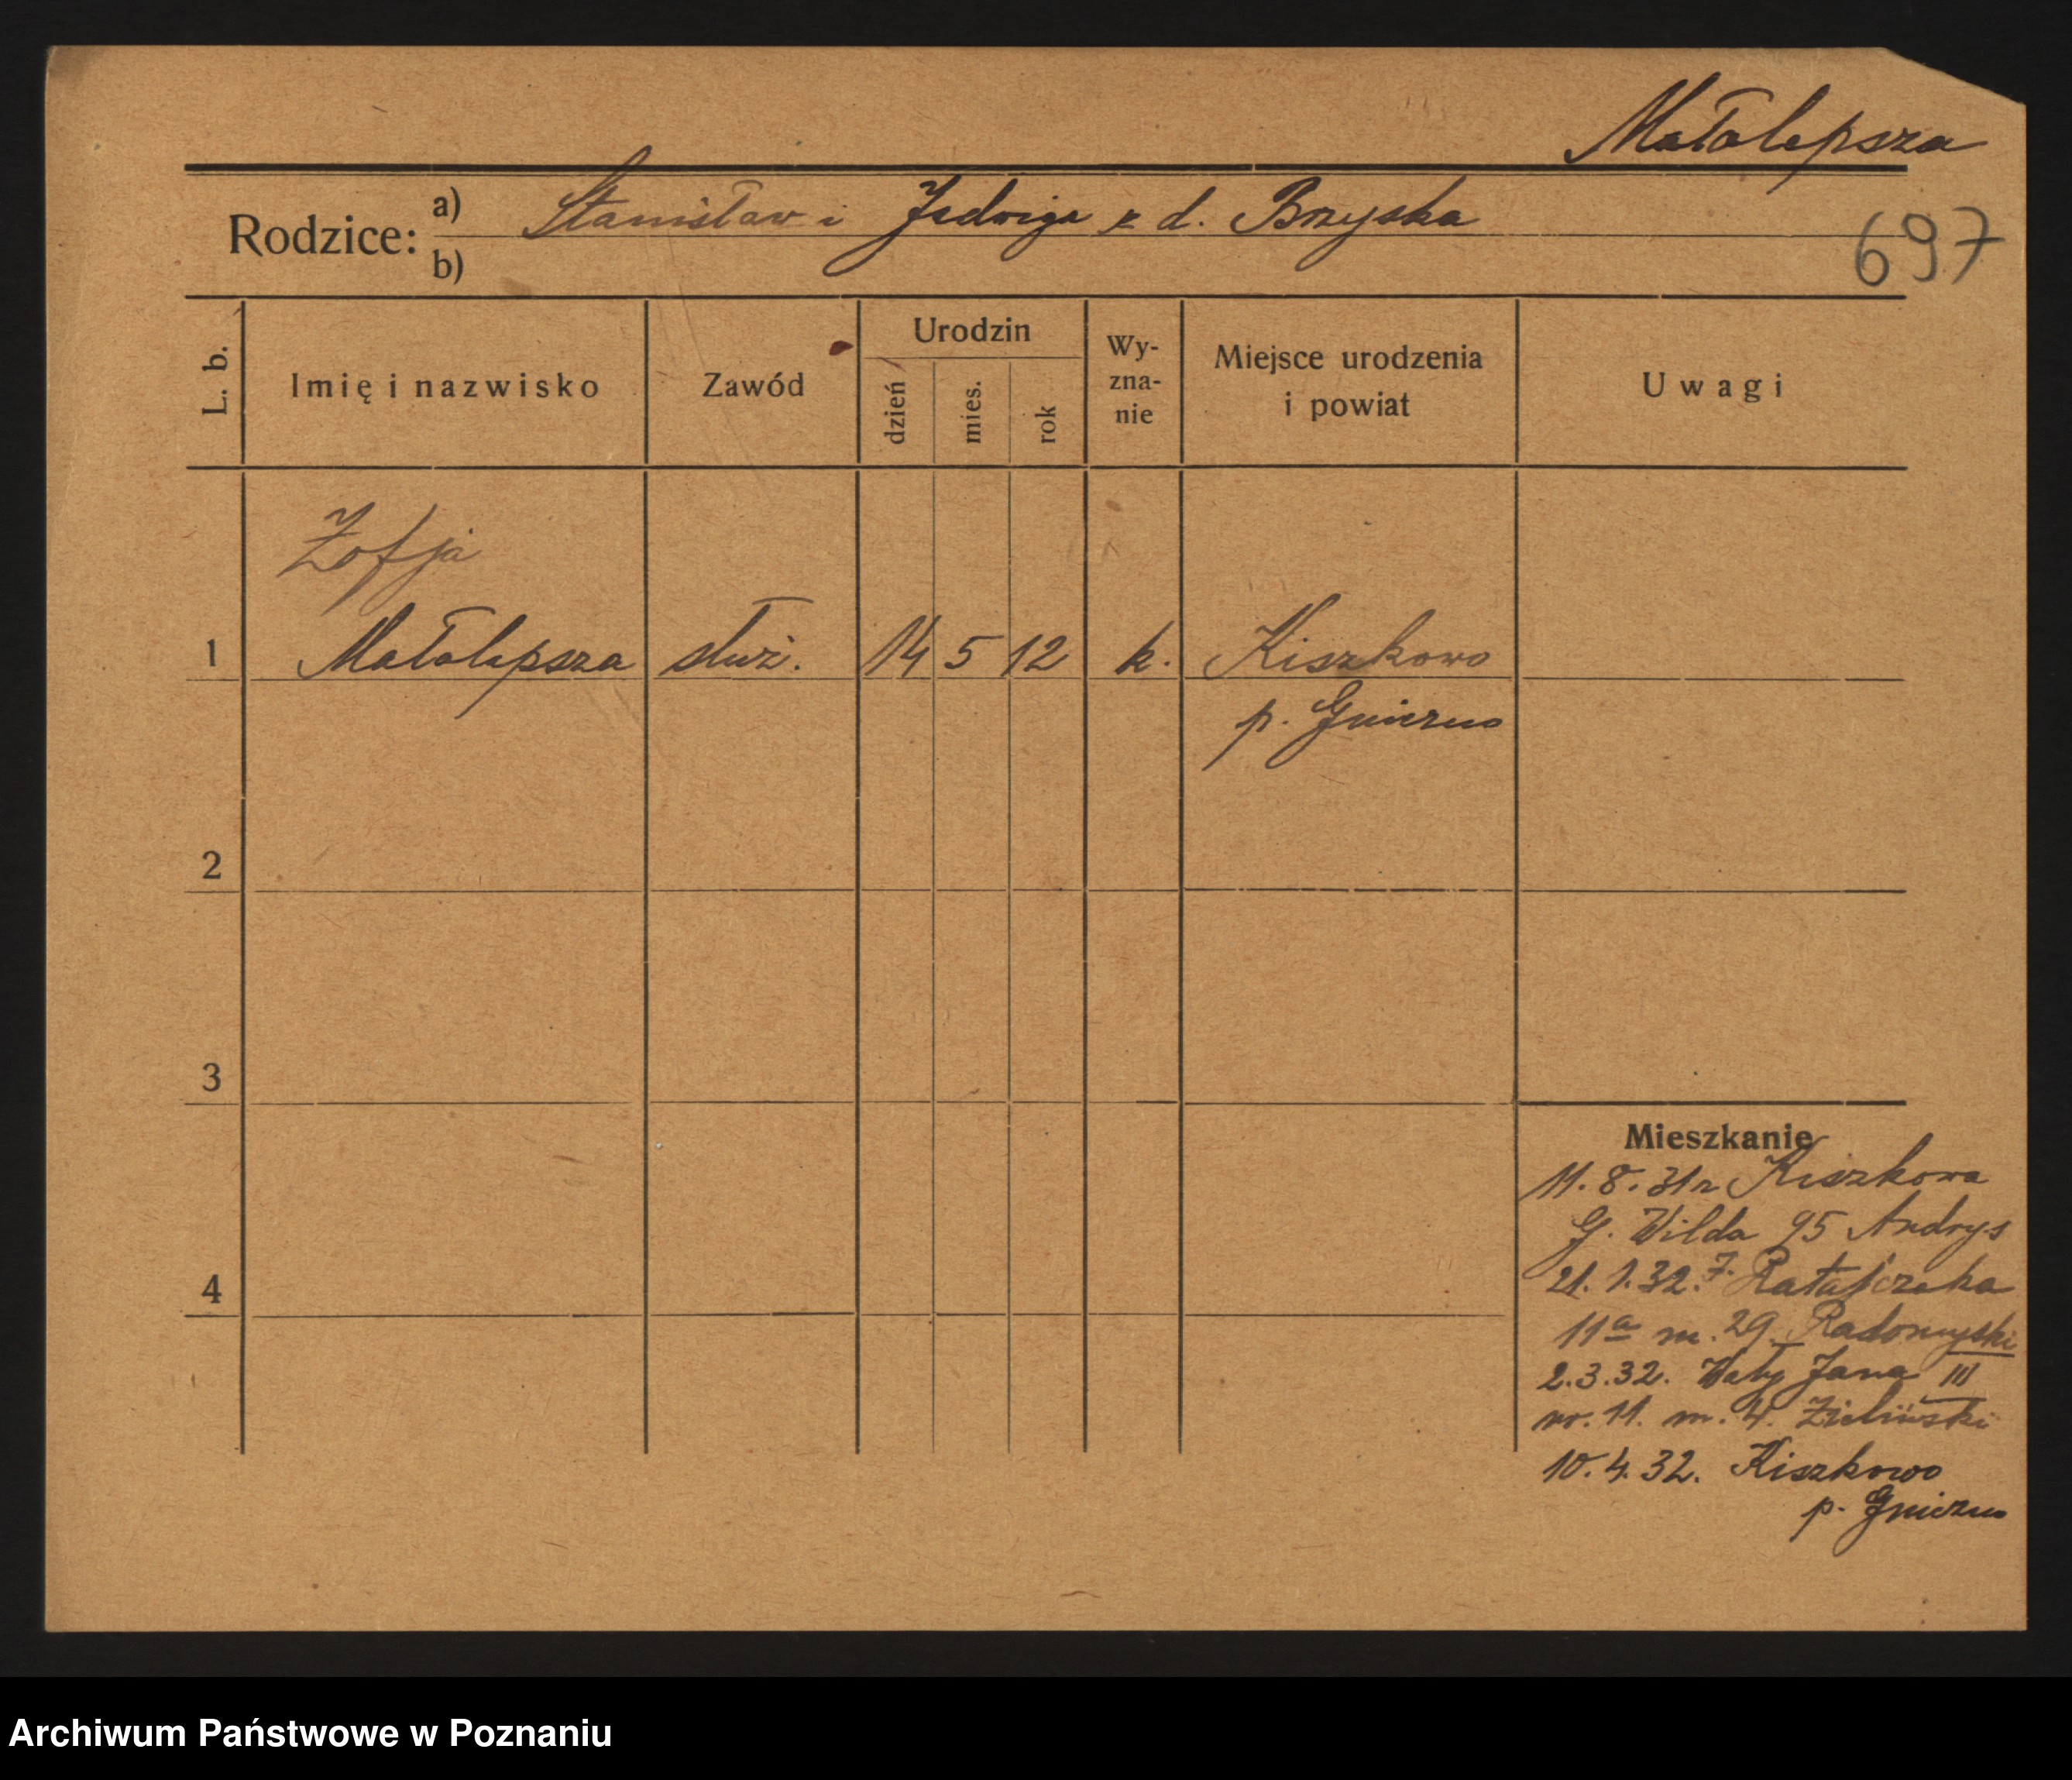 Małolepsza
Rodzice: a) Stanisław i Jadwiga z d. Bryska
b)
697
L. b.
Imię i nazwisko
Zawód
Urodzin
dzień
mies.
rok
Wy-
zna-
nie
Miejsce urodzenia
i powiat
Uwagi
Zofja
1 Małolepsza służ. 14 5 12 k. Kiszkowo
p. Gniezno
2
3
4
Mieszkanie
11. 8. 31 z Kiszkowa
G. Wilda 95 Andrys
21. 1. 32. F. Ratajczaka
11a m. 29 Radomyski
2. 3. 32. Wały Jana III
nr. 11. m. 4. Zieliński
10. 4. 32. Kiszkowo
p. Gniezno
Archiwum Państwowe w Poznaniu